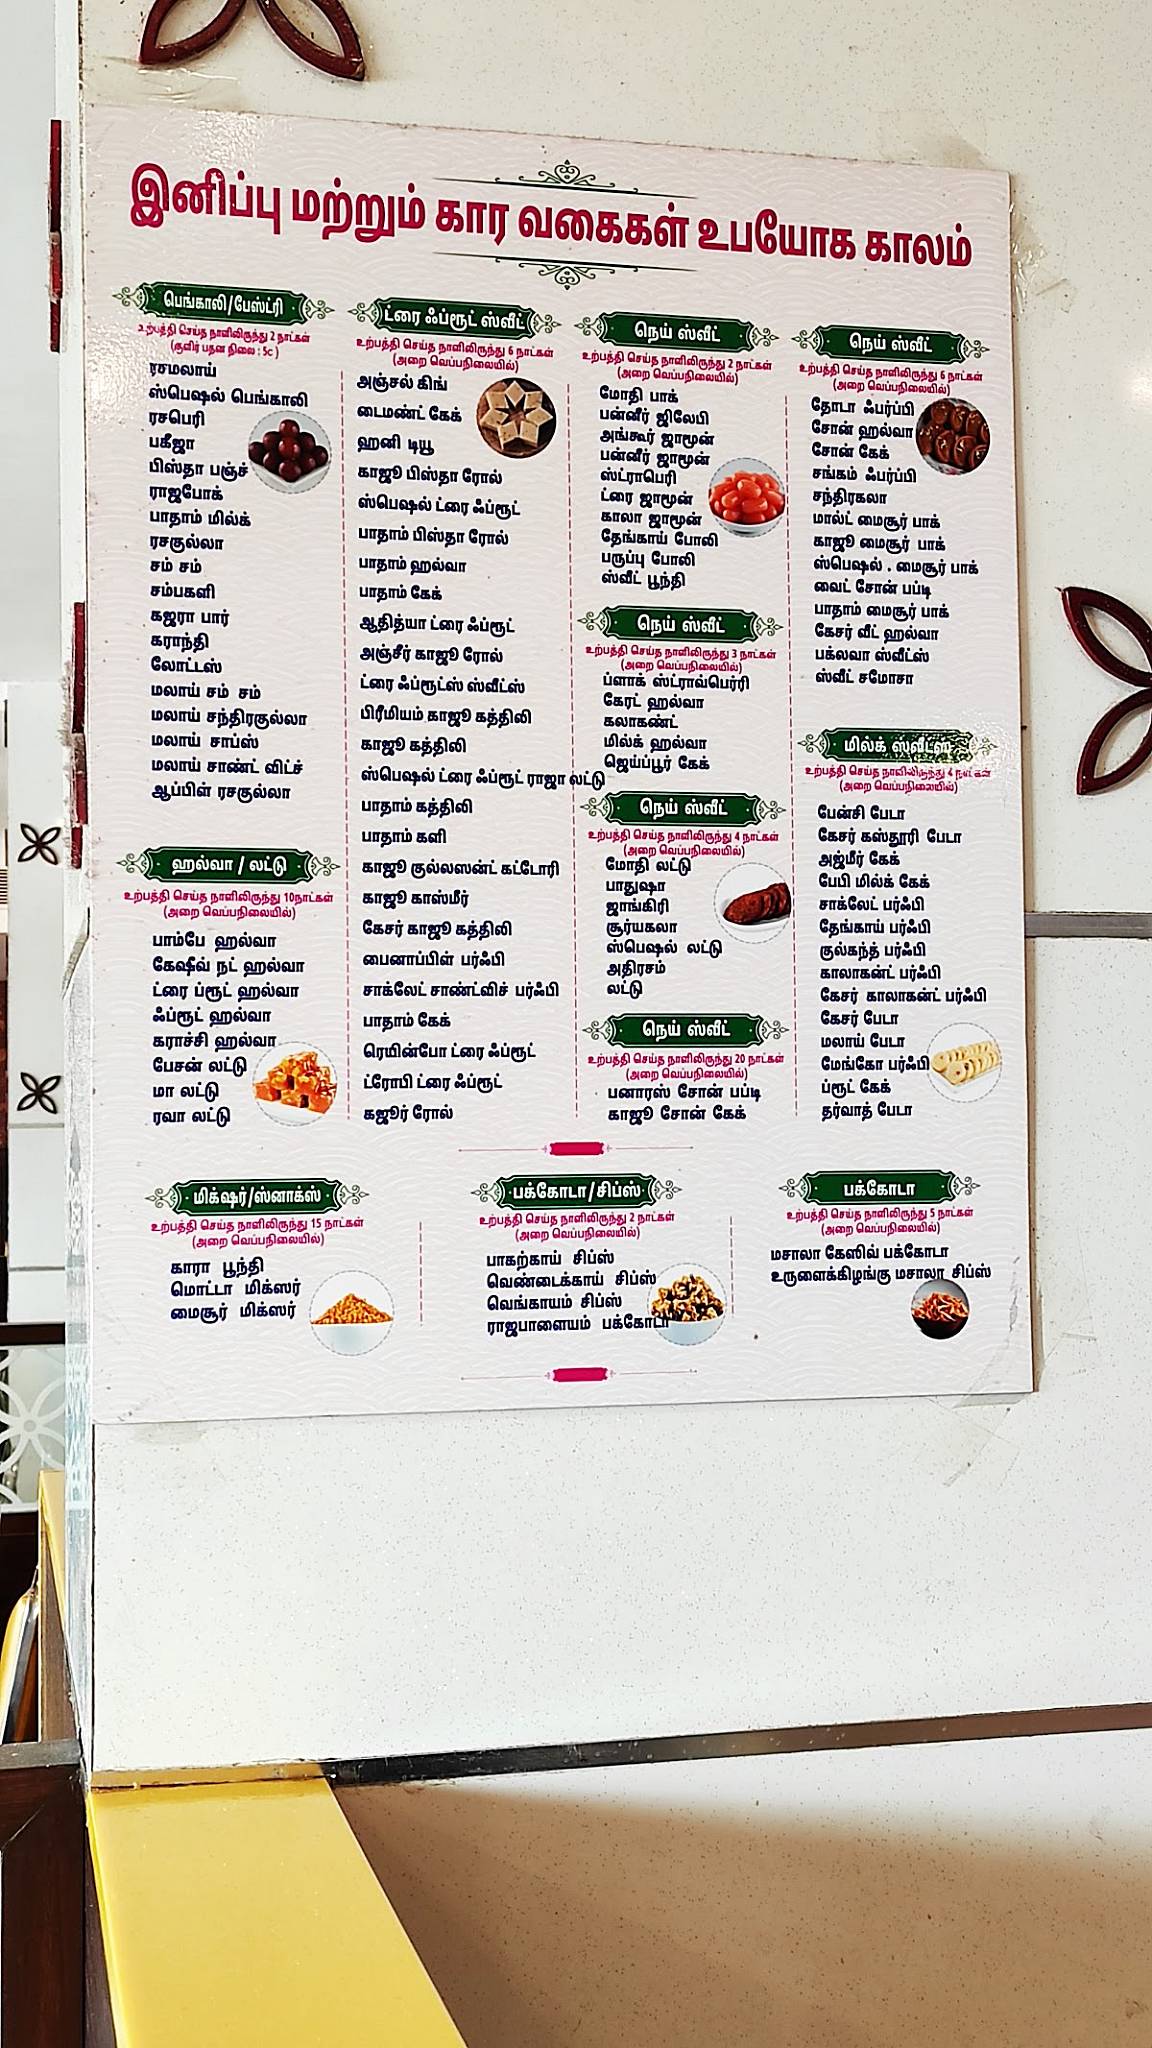 இனிப்பு மற்றும் கார வகைகள் உபயோக காலம்
பெங்காலி/பேஸ்ட்ரி
உற்பத்தி செய்த நாளிலிருந்து 2 நாட்கள்
(குளிர் பதன நிலை : 5c )
ரசமலாய்
ஸ்பெஷல் பெங்காலி
ரசபெரி
பகீஜா
பிஸ்தா பஞ்ச்
ராஜபோக்
பாதாம் மில்க்
ரசகுல்லா
சம் சம்
சம்பகளி
கஜரா பார்
கராந்தி
லோட்டஸ்
மலாய் சம் சம்
மலாய் சந்திரகுல்லா
மலாய் சாப்ஸ்
மலாய் சாண்ட் விட்ச்
ஆப்பிள் ரசகுல்லா
ஹல்வா / லட்டு
உற்பத்தி செய்த நாளிலிருந்து 10நாட்கள்
(அறை வெப்பநிலையில்)
பாம்பே ஹல்வா
கேஷீவ் நட் ஹல்வா
ட்ரை ப்ரூட் ஹல்வா
ஃப்ரூட் ஹல்வா
கராச்சி ஹல்வா
பேசன் லட்டு
மா லட்டு
ரவா லட்டு
ட்ரை ஃப்ரூட் ஸ்வீட்
உற்பத்தி செய்த நாளிலிருந்து 6 நாட்கள்
(அறை வெப்பநிலையில்)
அஞ்சல் கிங்
டைமண்ட் கேக்
ஹனி டியூ
காஜூ பிஸ்தா ரோல்
ஸ்பெஷல் ட்ரை ஃப்ரூட்
பாதாம் பிஸ்தா ரோல்
பாதாம் ஹல்வா
பாதாம் கேக்
ஆதித்யா ட்ரை ஃப்ரூட்
அஞ்சீர் காஜூ ரோல்
ட்ரை ஃப்ரூட்ஸ் ஸ்வீட்ஸ்
பிரீமியம் காஜூ கத்திலி
காஜூ கத்திலி
ஸ்பெஷல் ட்ரை ஃப்ரூட் ராஜா லட்டு
பாதாம் கத்திலி
பாதாம் களி
காஜூ குல்லஸன்ட் கட்டோரி
காஜூ காஸ்மீர்
கேசர் காஜூ கத்திலி
பைனாப்பிள் பர்ஃபி
சாக்லேட் சாண்ட்விச் பர்ஃபி
பாதாம் கேக்
ரெயின்போ ட்ரை ஃப்ரூட்
ட்ரோபி ட்ரை ஃப்ரூட்
கஜூர் ரோல்
நெய் ஸ்வீட்
உற்பத்தி செய்த நாளிலிருந்து 2 நாட்கள்
(அறை வெப்பநிலையில்)
மோதி பாக்
பன்னீர் ஜிலேபி
அங்கூர் ஜாமூன்
பன்னீர் ஜாமூன்
ஸ்ட்ராபெரி
ட்ரை ஜாமூன்
காலா ஜாமூன்
தேங்காய் போலி
பருப்பு போலி
ஸ்வீட் பூந்தி
நெய் ஸ்வீட்
உற்பத்தி செய்த நாளிலிருந்து 3 நாட்கள்
(அறை வெப்பநிலையில்)
ப்ளாக் ஸ்ட்ராவ்பெர்ரி
கேரட் ஹல்வா
கலாகண்ட்
மில்க் ஹல்வா
ஜெய்ப்பூர் கேக்
நெய் ஸ்வீட்
உற்பத்தி செய்த நாளிலிருந்து 4 நாட்கள்
(அறை வெப்பநிலையில்)
மோதி லட்டு
பாதுஷா
ஜாங்கிரி
சூர்யகலா
ஸ்பெஷல் லட்டு
அதிரசம்
லட்டு
நெய் ஸ்வீட்
உற்பத்தி செய்த நாளிலிருந்து 20 நாட்கள்
(அறை வெப்பநிலையில்)
பனாரஸ் சோன் பப்டி
காஜூ சோன் கேக்
நெய் ஸ்வீட்
உற்பத்தி செய்த நாளிலிருந்து 6 நாட்கள்
(அறை வெப்பநிலையில்)
தோடா ஃபர்ப்பி
சோன் ஹல்வா
சோன் கேக்
சங்கம் ஃபர்ப்பி
சந்திரகலா
மால்ட் மைசூர் பாக்
காஜூ மைசூர் பாக்
ஸ்பெஷல் . மைசூர் பாக்
வைட் சோன் பப்டி
பாதாம் மைசூர் பாக்
கேசர் வீட் ஹல்வா
பக்லவா ஸ்வீட்ஸ்
ஸ்வீட் சமோசா
மில்க் ஸ்வீட்ஸ்
உற்பத்தி செய்த நாளிலிருந்து 4 நாட்கள்
(அறை வெப்பநிலையில்)
பேன்சி பேடா
கேசர் கஸ்தூரி பேடா
அஜ்மீர் கேக்
பேபி மில்க் கேக்
சாக்லேட் பர்ஃபி
தேங்காய் பர்ஃபி
குல்கந்த் பர்ஃபி
காலாகன்ட் பர்ஃபி
கேசர் காலாகன்ட் பர்ஃபி
கேசர் பேடா
மலாய் பேடா
மேங்கோ பர்ஃபி
ப்ரூட் கேக்
தர்வாத் பேடா
மிக்ஷர்/ஸ்னாக்ஸ்
உற்பத்தி செய்த நாளிலிருந்து 15 நாட்கள்
(அறை வெப்பநிலையில்)
காரா பூந்தி
மொட்டா மிக்ஸர்
மைசூர் மிக்ஸர்
பக்கோடா/சிப்ஸ்
உற்பத்தி செய்த நாளிலிருந்து 2 நாட்கள்
(அறை வெப்பநிலையில்)
பாகற்காய் சிப்ஸ்
வெண்டைக்காய் சிப்ஸ்
வெங்காயம் சிப்ஸ்
ராஜபாளையம் பக்கோடா
பக்கோடா
உற்பத்தி செய்த நாளிலிருந்து 5 நாட்கள்
(அறை வெப்பநிலையில்)
மசாலா கேஸிவ் பக்கோடா
உருளைக்கிழங்கு மசாலா சிப்ஸ்